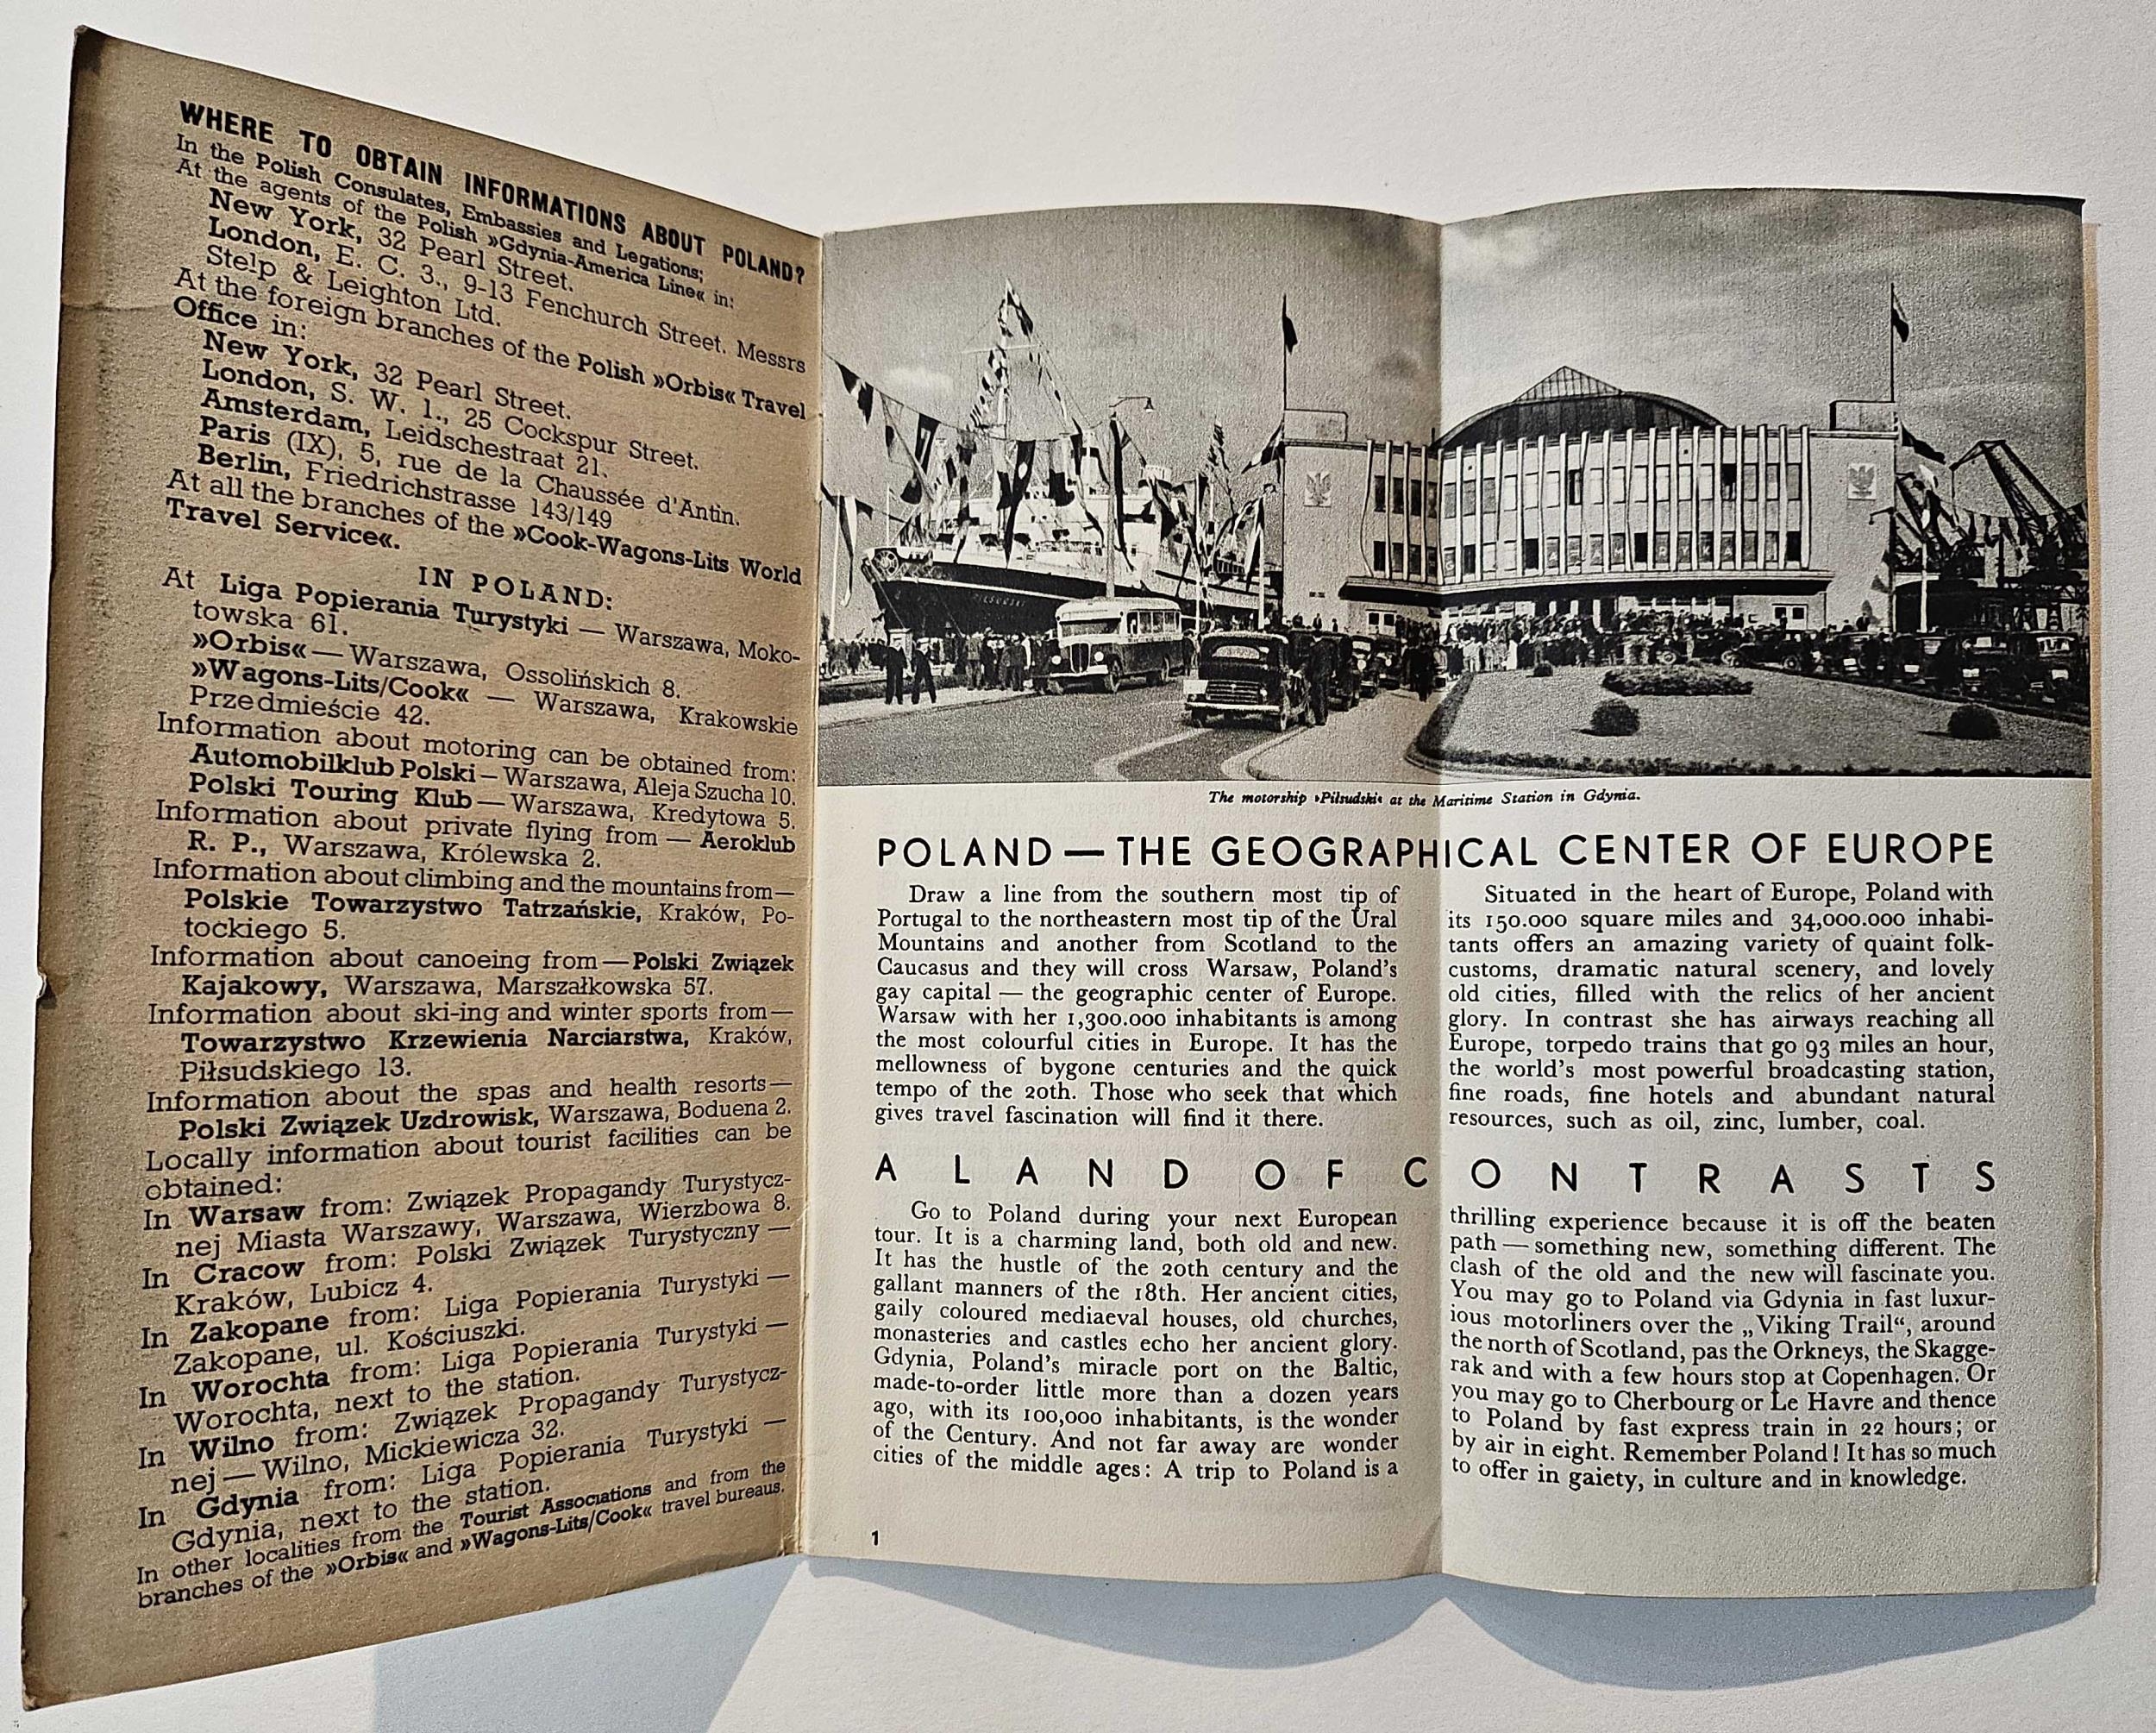 WHERE TO OBTAIN INFORMATIONS ABOUT POLAND?
In the Polish Consulates, Embassies and Legations;
At the agents of the Polish »Gdynia-America Line« in:
New York, 32 Pearl Street.
London, E. C. 3., 9-13 Fenchurch Street. Messrs
Stelp & Leighton Ltd.
At the foreign branches of the Polish »Orbis« Travel
Office in:
New York, 32 Pearl Street.
London, S. W. 1., 25 Cockspur Street.
Amsterdam, Leidschestraat 21.
Paris (IX), 5, rue de la Chaussée d'Antin.
Berlin, Friedrichstrasse 143/149
At all the branches of the »Cook-Wagons-Lits World
Travel Service«.
IN POLAND:
At Liga Popierania Turystyki — Warszawa, Moko-
towska 61.
»Orbis« — Warszawa, Ossolińskich 8.
»Wagons-Lits/Cook« — Warszawa, Krakowskie
Przedmieście 42.
Information about motoring can be obtained from:
Automobilklub Polski — Warszawa, Aleja Szucha 10.
Polski Touring Klub — Warszawa, Kredytowa 5.
Information about private flying from — Aeroklub
R. P., Warszawa, Królewska 2.
Information about climbing and the mountains from—
Polskie Towarzystwo Tatrzańskie, Kraków, Po-
tockiego 5.
Information about canoeing from — Polski Związek
Kajakowy, Warszawa, Marszałkowska 57.
Information about ski-ing and winter sports from —
Towarzystwo Krzewienia Narciarstwa, Kraków,
Piłsudskiego 13.
Information about the spas and health resorts—
Polski Związek Uzdrowisk, Warszawa, Boduena 2.
Locally information about tourist facilities can be
obtained:
In Warsaw from: Związek Propagandy Turystycz-
nej Miasta Warszawy, Warszawa, Wierzbowa 8.
In Cracow from: Polski Związek Turystyczny —
Kraków, Lubicz 4.
In Zakopane from: Liga Popierania Turystyki —
Zakopane, ul. Kościuszki.
In Worochta from: Liga Popierania Turystyki —
Worochta, next to the station.
In Wilno from: Związek Propagandy Turystycz-
nej — Wilno, Mickiewicza 32.
In Gdynia from: Liga Popierania Turystyki —
Gdynia, next to the station.
In other localities from the Tourist Associations and from the
branches of the »Orbis« and »Wagons-Lits/Cook« travel bureaus.
PIŁSUDSKI
The motorship »Piłsudski« at the Maritime Station in Gdynia.
POLAND — THE GEOGRAPHICAL CENTER OF EUROPE
Draw a line from the southern most tip of
Portugal to the northeastern most tip of the Ural
Mountains and another from Scotland to the
Caucasus and they will cross Warsaw, Poland's
gay capital — the geographic center of Europe.
Warsaw with her 1,300.000 inhabitants is among
the most colourful cities in Europe. It has the
mellowness of bygone centuries and the quick
tempo of the 20th. Those who seek that which
gives travel fascination will find it there.
Situated in the heart of Europe, Poland with
its 150.000 square miles and 34,000.000 inhabi-
tants offers an amazing variety of quaint folk-
customs, dramatic natural scenery, and lovely
old cities, filled with the relics of her ancient
glory. In contrast she has airways reaching all
Europe, torpedo trains that go 93 miles an hour,
the world's most powerful broadcasting station,
fine roads, fine hotels and abundant natural
resources, such as oil, zinc, lumber, coal.
A LAND OF CONTRASTS
Go to Poland during your next European
tour. It is a charming land, both old and new.
It has the hustle of the 20th century and the
gallant manners of the 18th. Her ancient cities,
gaily coloured mediaeval houses, old churches,
monasteries and castles echo her ancient glory.
Gdynia, Poland's miracle port on the Baltic,
made-to-order little more than a dozen years
ago, with its 100,000 inhabitants, is the wonder
of the Century. And not far away are wonder
cities of the middle ages: A trip to Poland is a
thrilling experience because it is off the beaten
path — something new, something different. The
clash of the old and the new will fascinate you.
You may go to Poland via Gdynia in fast luxur-
ious motorliners over the „Viking Trail“, around
the north of Scotland, pas the Orkneys, the Skagge-
rak and with a few hours stop at Copenhagen. Or
you may go to Cherbourg or Le Havre and thence
to Poland by fast express train in 22 hours; or
by air in eight. Remember Poland! It has so much
to offer in gaiety, in culture and in knowledge.
1